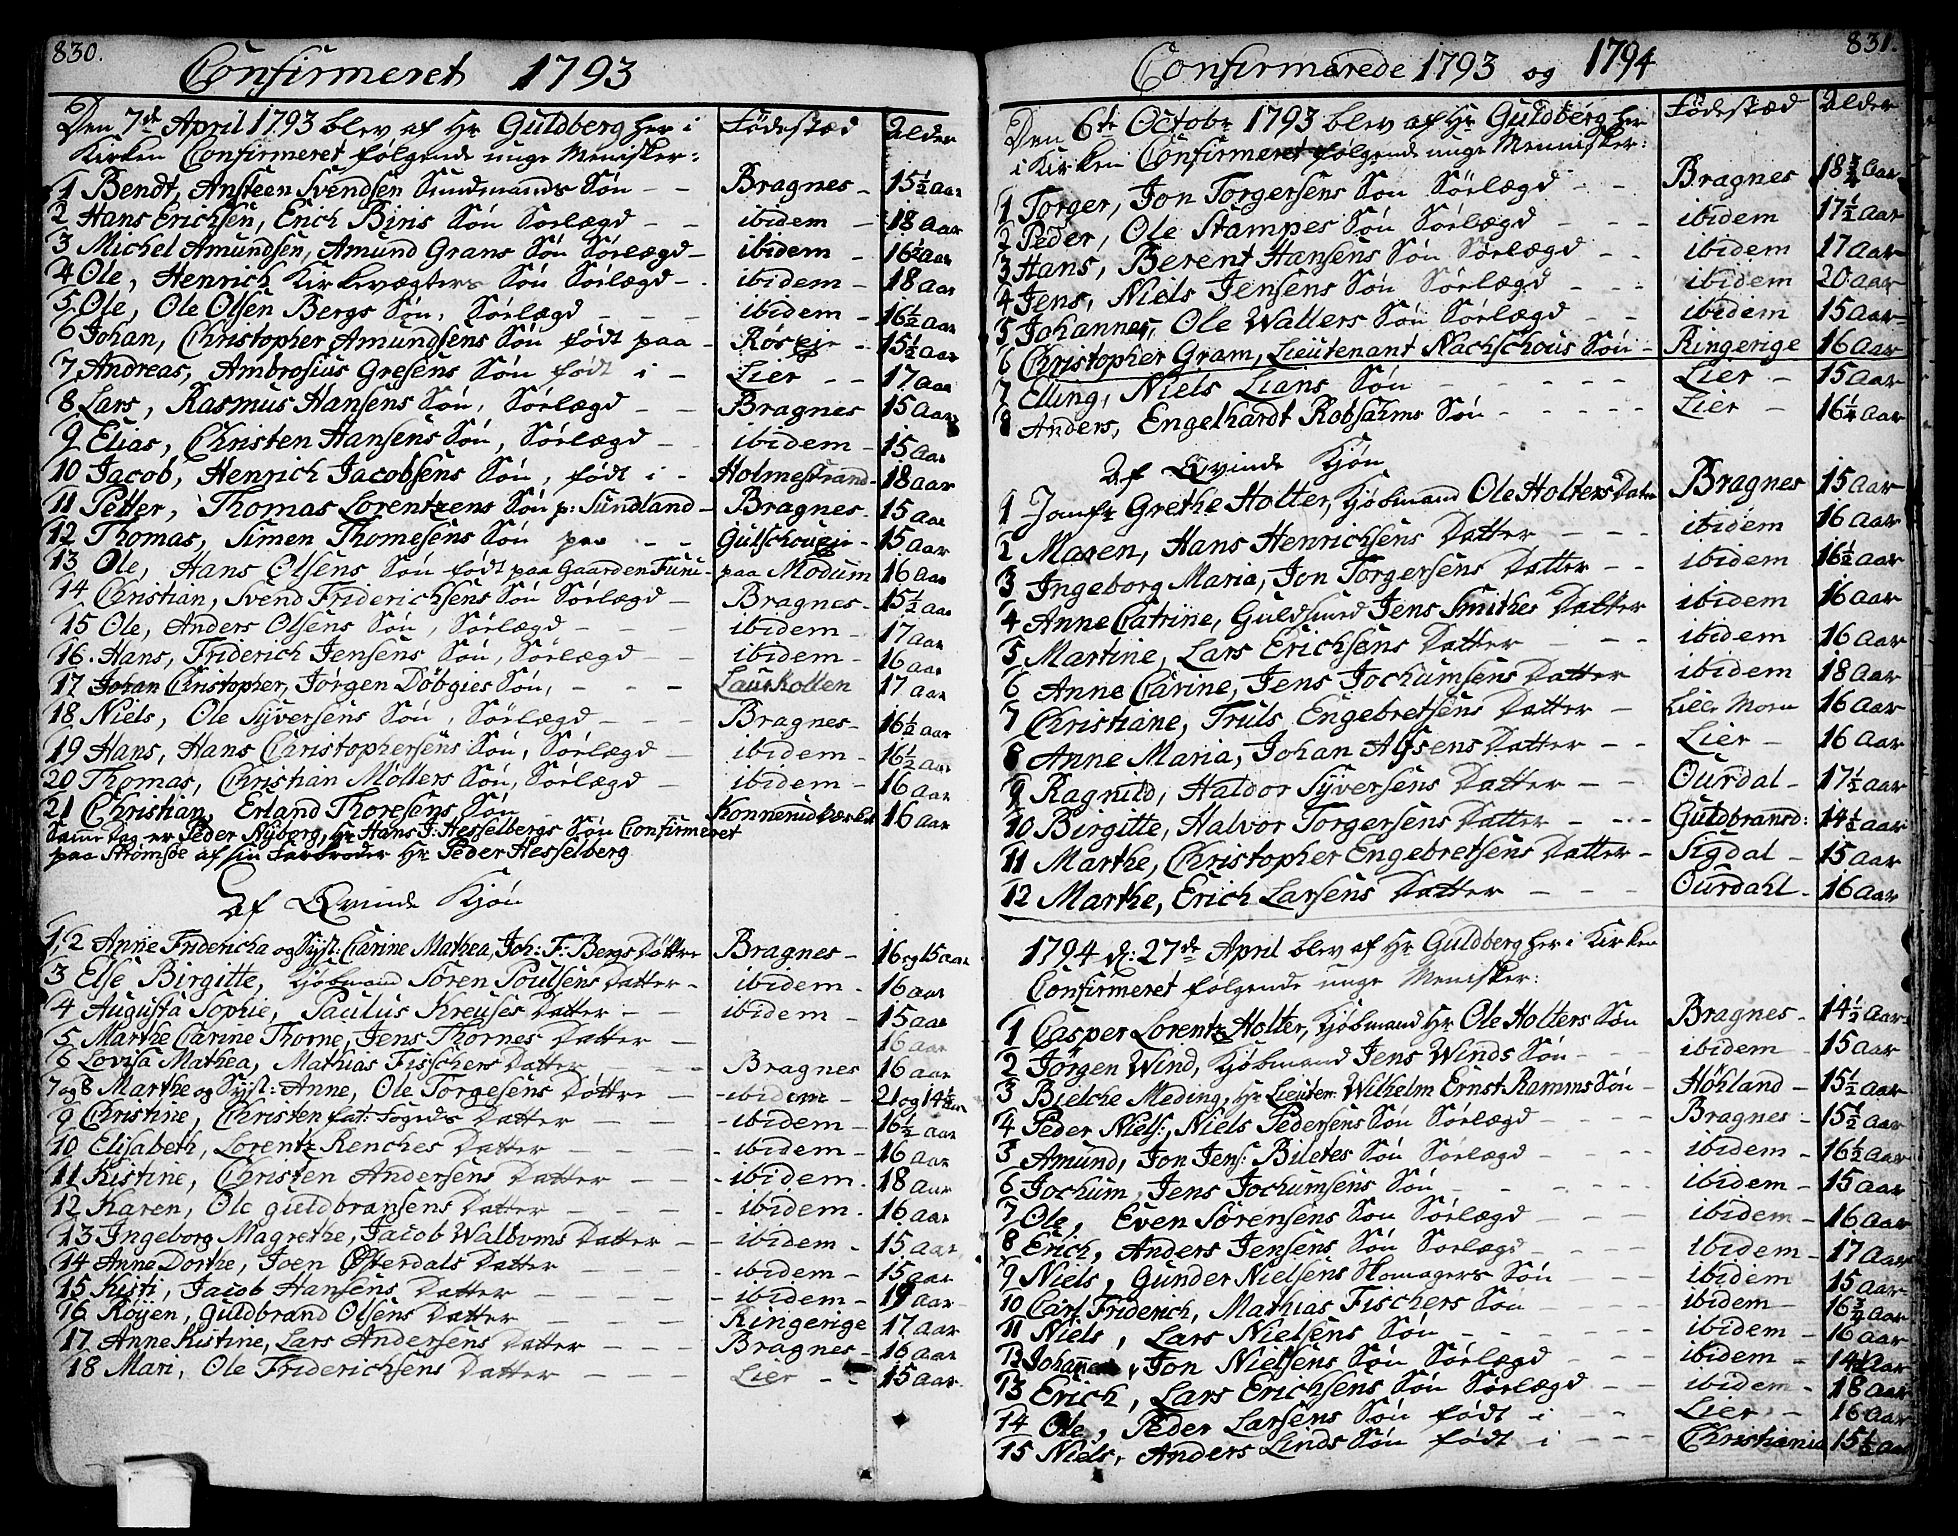 830.
Confirmeret 1793
Den 7de April 1793 blev af Hr Guldberg her i Fødestæd Alder
Kirken Confirmeret følgende unge Menisker:
1 Bendt, Ansteen Svendsen Sundmands Søn - - Bragnes - 15½ Aar
2 Hans Erichsen, Erich Biris Søn Sørlægd - - ibidem - 18 Aar
3 Michel Amundsen, Amund Grans Søn Sørlægd - ibidem - 16½ Aar
4 Ole, Henrich Kirkevægters Søn Sørlægd - - ibidem - 18 Aar
5 Ole, Ole Olsen Bergs Søn, Sørlægd - - - ibidem - 16½ Aar
6 Johan, Christopher Amundsens Søn født paa - Røseie - 15½ Aar
7 Andreas, Ambrosius Gresens Søn født i - Lier - - 17 Aar
8 Lars, Rasmus Hansens Søn, Sørlægd - - Bragnes 15 Aar
9 Elias, Christen Hansens Søn, Sørlægd - - ibidem - 15 Aar
10 Jacob, Henrich Jacobsens Søn, født i - Holmestrand - 18 Aar
11 Petter, Thomas Lorentzens Søn p: Sundland - Bragnes - 15 Aar
12 Thomas, Simen Thomesens Søn paa - - Gulschoueie - 15 Aar
13 Ole, Hans Olsens Søn født paa Gaarden Funi - paa Modum 16 Aar
14 Christian, Svend Friderichsens Søn Sørlægd - Bragnes - 15½ Aar
15 Ole, Anders Olsens Søn, Sørlægd - - - ibidem - 17 Aar
16. Hans, Friderich Jensens Søn, Sørlægd - - ibidem - 16 Aar
17 Johan Christopher, Jørgen Döbgies Søn, - - - Laurkollen 17 Aar
18 Niels, Ole Syversens Søn, Sørlægd - - - Bragnes - 16½ Aar
19 Hans, Hans Christophersens Søn, Sørlægd - ibidem - 16½ Aar
20 Thomas, Christian Möllers Søn, Sørlægd - ibidem - 16 Aar
21 Christian, Erland Thoresens Søn - Konnerudværket 16 Aar
Samme Dag er Peder Nyborg, Hr Hans J. Hesselbergs Søn Confirmeret
paa Strømsøe af sin Farbroder Hr Peder Hesselberg
Af Qvinde Kjøn
1, 2 Anne Fridericha og Syst: Carine Mathea, Joh: F: Bergs Døttre Bragnes - 16 og 15 Aar
3 Else Birgitte, Kjøbmand Søren Poulsens Datter - ibidem - 16 Aar
4 Augusta Sophie, Paulus Kreuses Datter - - ibidem - 15 Aar
5 Marthe Carine Thorne, Jens Thornes Datter - 16 Aar
6 Lovisa Mathea, Mathias Fisschers Datter - - - Bragnes 16 Aar
7 og 8 Marthe og Syst: Anne, Ole Torgesens Døttre - - ibidem - 21 og 14½ Aar
9 Christine, Christen fat: Fogeds Datter - - - ibidem - 16½ Aar
10 Elisabeth, Lorentz Renches Datter - - - - ibidem - 16 Aar
11 Kistine, Christen Andersens Datter - - - ibidem. 18 Aar
12 Karen, Ole Guldbransens Datter - - - - ibidem - 16 Aar
13 Ingeborg Magrethe, Jacob Walboms Datter - - ibidem - 15 Aar
14 Anne Dorthe, Joen Østerdals Datter - - - ibidem - 15 Aar
15 Kisti, Jacob Hansens Datter - - - - ibidem - 19 Aar
16 Røyen, Guldbrand Olsens Datter - - - Ringerige 17 Aar
17 Anne Kistine, Lars Andersens Datter - - - Bragnes - 16 Aar
18 Mari, Ole Friderichsens Datter - - - Lier - - 15 Aar
831.
Confirmerede 1793 og 1794
Den 6te Octobr 1793 blev af Hr Guldberg her Fødestæd Alder
i Kirken Confirmeret følgende unge Mennisker:
1 Torger, Jon Torgersens Søn Sørlægd - - Bragnes 18¾ Aar
2 Peder, Ole Stampes Søn Sørlægd - - ibidem 17½ Aar
3 Hans, Berent Hansens Søn Sørlægd - - ibidem 17 Aar
4 Jens, Niels Jensens Søn Sørlægd - - - ibidem 20 Aar
5 Johannes, Ole Wallers Søn Sørlægd - - ibidem 15 Aar
6 Christopher Gram, Lieutenant Nachschous Søn - Ringerige 16 Aar
7 Elling, Niels Lians Søn - - - - - Lier - 15 Aar
8 Anders, Engelhardt Robsahms Søn - - - - - Lier - 16¼ Aar
Af Qvinde Kjøn
1 Jomfr Grethe Holter, Kjøbmand Ole Holters Datter Bragnes 15 Aar
2 Maren, Hans Henrichsens Datter - - - ibidem 16 Aar
3 Ingeborg Maria, Jon Torgersens Datter - - ibidem 16½ Aar
4 Anne Catrine, Guldsmed Jens Smithes Datter ibidem 16 Aar
5 Martine, Lars Erichsens Datter - - - ibidem 16 Aar
6 Anne Carine, Jens Jochumsens Datter ibidem 18 Aar
7 Christiane, Truls Engebretsens Datter - Lille Moen 16 Aar
8 Anne Maria, Johan Alfsens Datter - - Lier - 16 Aar
9 Ragnild, Haldor Syversens Datter - - Ourdal - 17½ Aar
10 Birgitte, Halvor Torgersens Datter - - - Guldbransd: 14½ Aar
11 Marthe, Christopher Engebretsens Datter - Sigdal - 15 Aar
12 Marthe, Erich Larsens Datter - - - Ourdahl - 16 Aar
1794 d: 27de April blev af Hr Guldberg her i Kirken
Confirmeret følgende unge Menisker:
1 Casper Lorentz Holter, Kjøbmand Hr Ole Holters Søn Bragnes - 14½ Aar
2 Jørgen Wind, Kjøbmand Jens Winds Søn - - - ibidem - 15 Aar
3 Bielche Meding, Hr Lieuten: Wilhelm Ernst Ramms Søn - Höhland - 15½ Aar
4 Peder Niels:, Niels Pedersens Søn Sørlægd - - - Bragnes - 15½ Aar
5 Amund, Jon Jens: Biletes Søn Sørlægd - - - ibidem - 16½ Aar
6 Jochum, Jens Jochumsens Søn - - - - ibidem - 15 Aar
7 Ole, Even Sørensens Søn Sørlægd - - - ibidem - 16 Aar
8 Erich, Anders Jensens Søn Sørlægd - - - ibidem - 17 Aar
9 Niels, Gunder Nielsens Skomagers Søn - - - ibidem 15 Aar
10 Carl Friderich, Mathias Fischers Søn - - - ibidem - 16¾ Aar
11 Niels, Lars Nielsens Søn - - - - - ibidem - 16 Aar
12 Johannes, Jon Nielsens Søn Sørlægd - - - ibidem - 14½ Aar
13 Erich, Lars Erichsens Søn Sørlægd - - ibidem - 18 Aar
14 Ole, Peder Larsens Søn født i - - Lier - 16 Aar
15 Niels, Anders Linds Søn født i - - - Christiania 15½ Aar